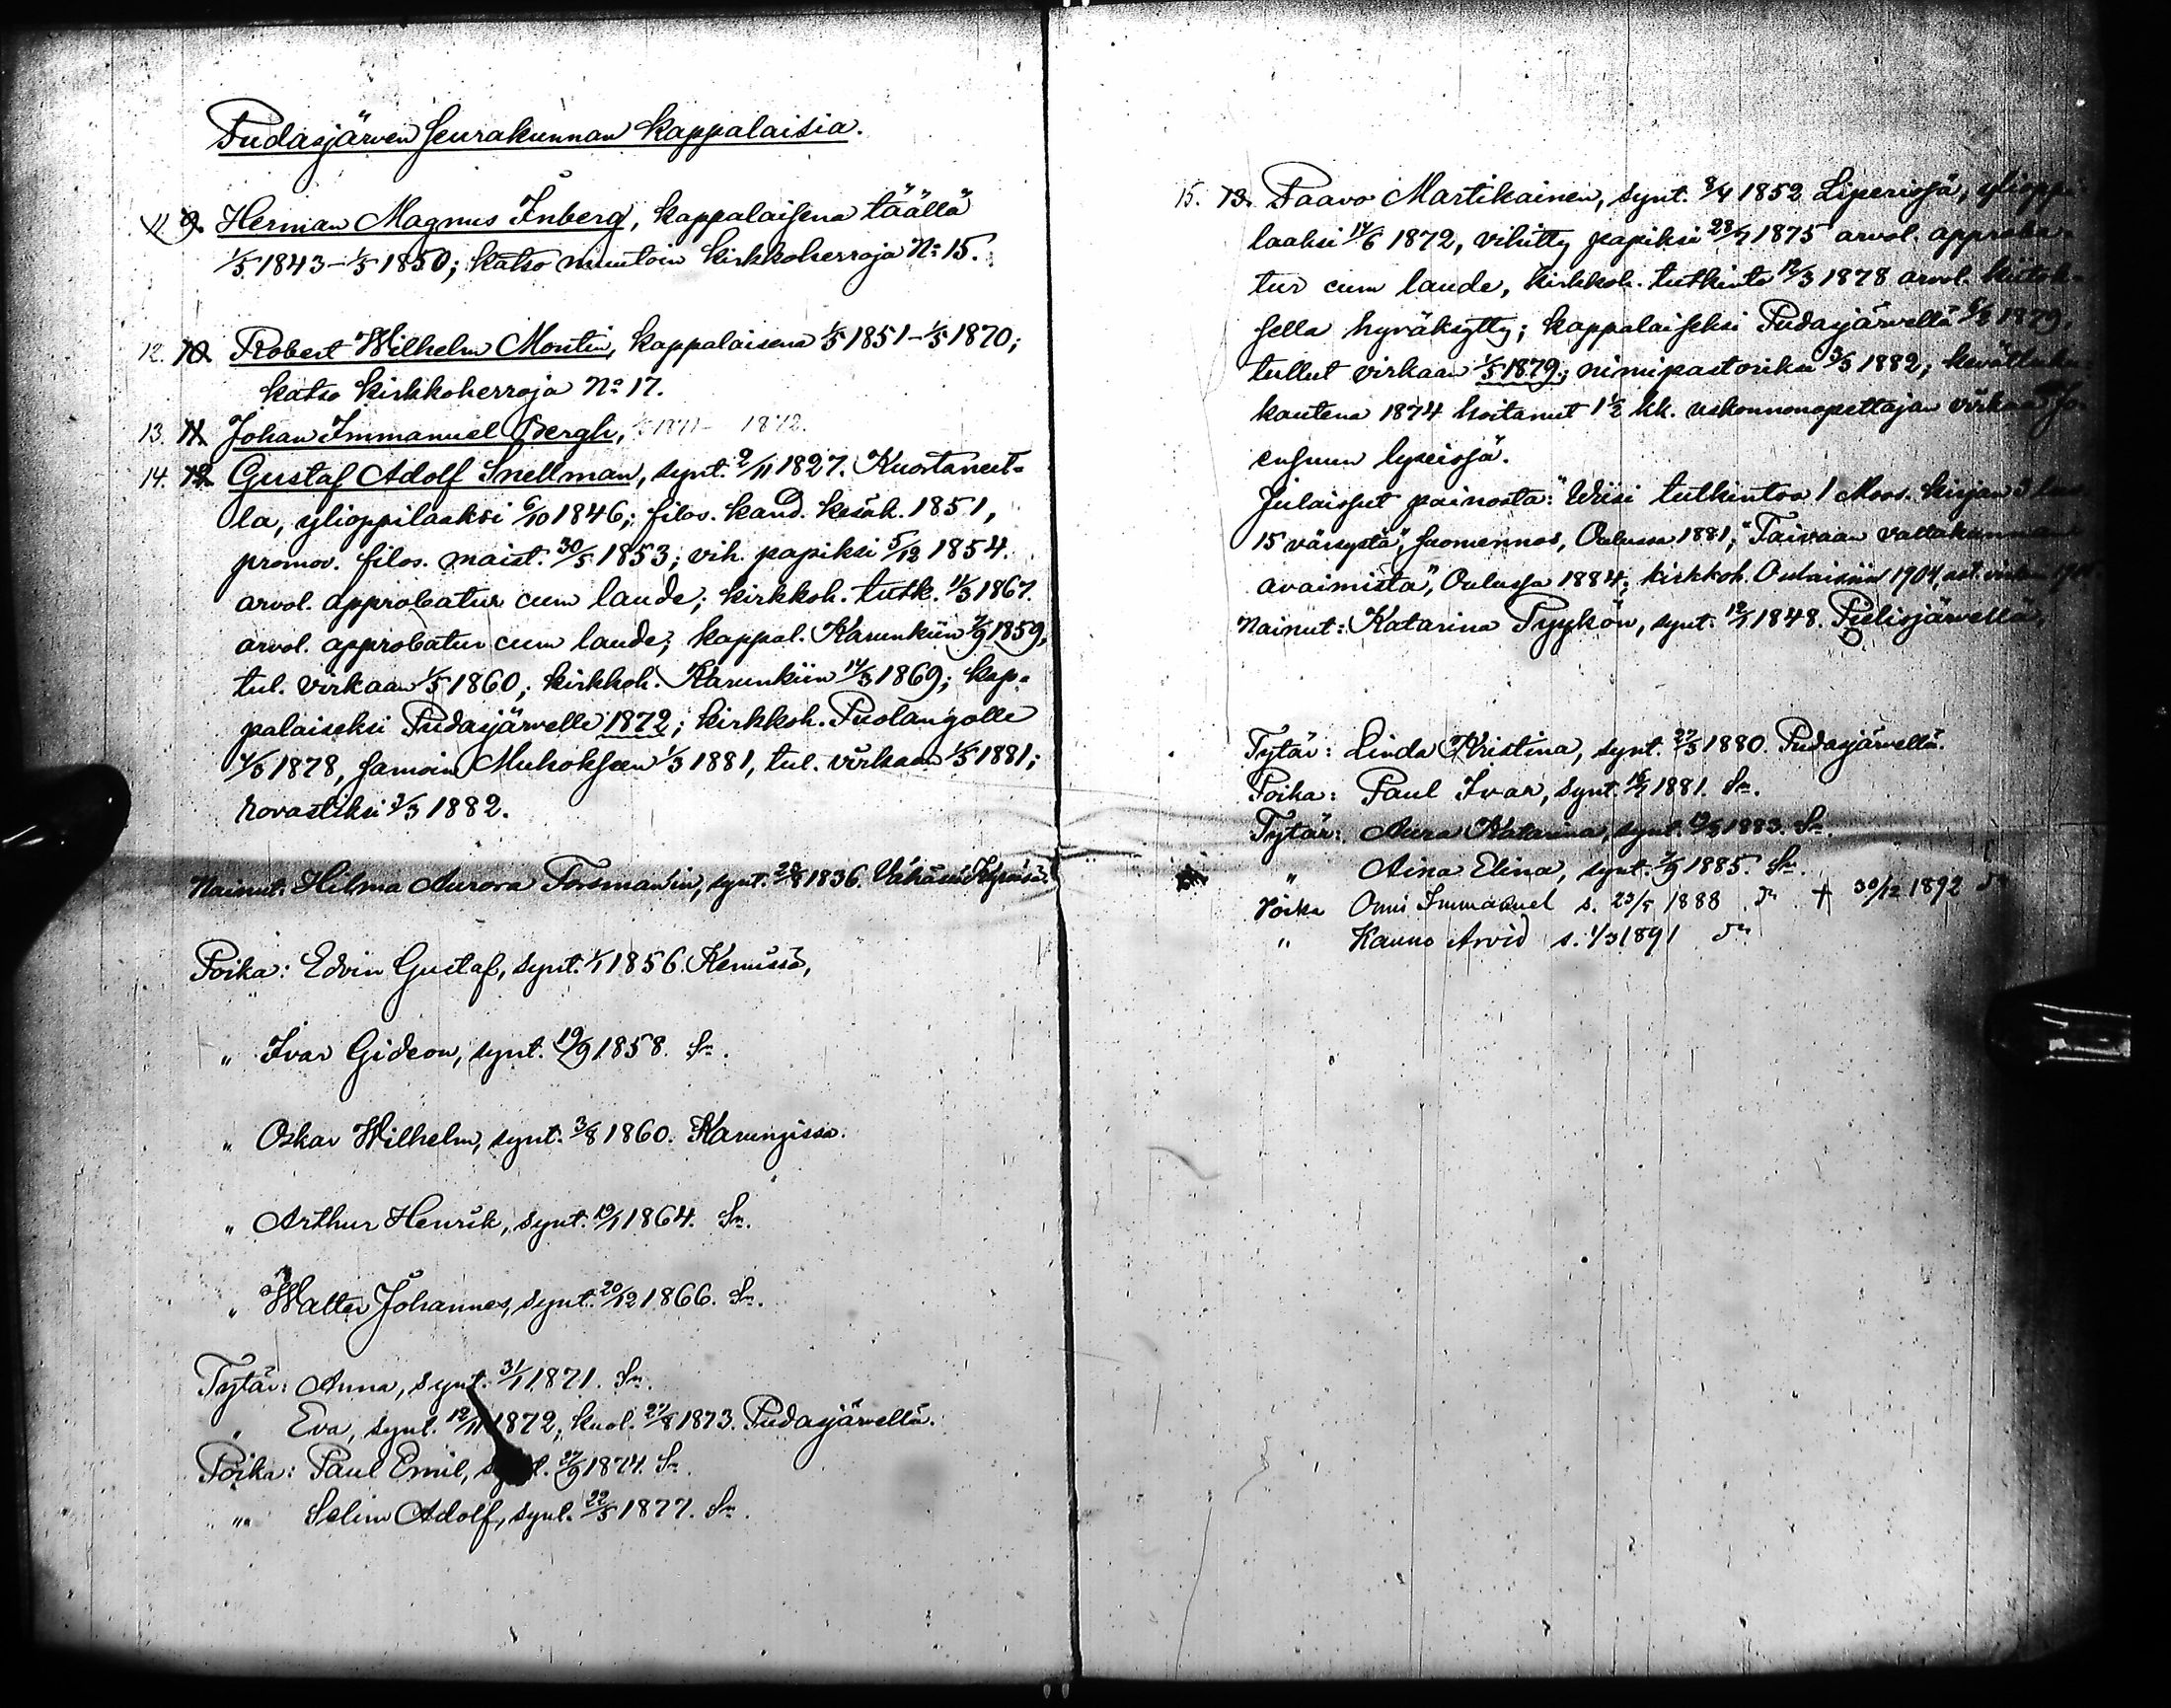 Pudasjärven seurakunnan kappalaisia.
11. 9. Herman Magnus Inberg, kappalaisena täällä
1/5 1843–1/5 1850; katso muutoin kirkkoherroja No 15.
12. 10. Robert Wilhelm Montin, kappalaisena 1/5 1851–1/5 1870;
katso kirkkoherroja No 17.
13. 11. Johan Immanuel Bergh, 1871– 1872.
14. 12. Gustaf Adolf Snellman, synt. 9/11 1827. Kuortaneel-
la, ylioppilaaksi 6/10 1846; filos. kand. kesäk. 1851,
promov. filos. maist. 30/5 1853; vih. papiksi 5/12 1854.
arvol. approbatur cum laude; kirkkoh. tutk. 11/3 1867.
arvol. approbatur cum laude; kappal. Karunkiin 7/9 1859,
tul. virkaan 1/5 1860; kirkkoh. Karunkiin 14/3 1869; kap-
palaiseksi Pudasjärvelle 1872; kirkkoh. Puolangolle
1878, samoin Muhokseen 1/3 1881, tul. virkaan 1/5 1881;
rovastiksi 3/3 1882.
Nainut: Hilma Aurora Forsman'in, synt. 1836. Vähässä Kyrössä.
Poika: Edvin Gustaf, synt. 1/1 1856. Kemissä,
" Ivar Gideon, synt. 19/9 1858. Sn.
" Oskar Wilhelm, synt. 3/8 1860. Karungissa.
" Arthur Henrik, synt. 19/1 1864. Sn.
" Walter Johannes, synt. 20/12 1866. Sn.
Tytär: Anna, synt. 31/1 1871. Sn.
" Eva, synt. 12/11 1872, kuol. 27/8 1873. Pudasjärvellä.
Poika: Paul Emil, synt. 27/9 1874. Sn.
" Selim Adolf, synt. 22/5 1877. Sn.
15. 13. Paavo Martikainen, synt. 8/4 1852 Liperissä, yliop­pi-
laaksi 14/6 1872, vihitty papiksi 28/7 1875 arvol. approba-
tur cum laude, kirkkoh. tutkinto 12/3 1878 arvol. kiitok-
sella hyväksytty; kappalaiseksi Pudasjärvellä 1879
tullut virkaan 1/5 1879; nimipastoriksi 3/3 1882; kevätluku-
kautena 1874 hoitanut 1 1/2 kk. uskonnonopettajan virkaa Jo-
ensuun lyseissä.
Julaissut painosta: "Wiisi tutkintoa 1 Moos. kirjan 3 luvun
15 värsystä", suomennos, Oulussa 1881, "Taivaan valtakunnan
avaimista", Oulussa 1884; kirkkoh. Oulaisiin 1904, ast. virkaan
Nainut: Katarina Tyykön, synt. 12/1 1848. Pielisjärvellä,
Tytär: Linda Kristina, synt. 27/3 1880. Pudasjärvellä.
Poika: Paul Ivar, synt. 1881. Sn.
Tytär: Aura Katarina, synt. 1883. Sn.
" Aina Elina, synt. 2/9 1885. Sn.
Poika Onni Immanuel s. 23/5 1888 Sn † 30/12 1892 Sn
" Kauno Arvid s. 1/3 1891 Sn